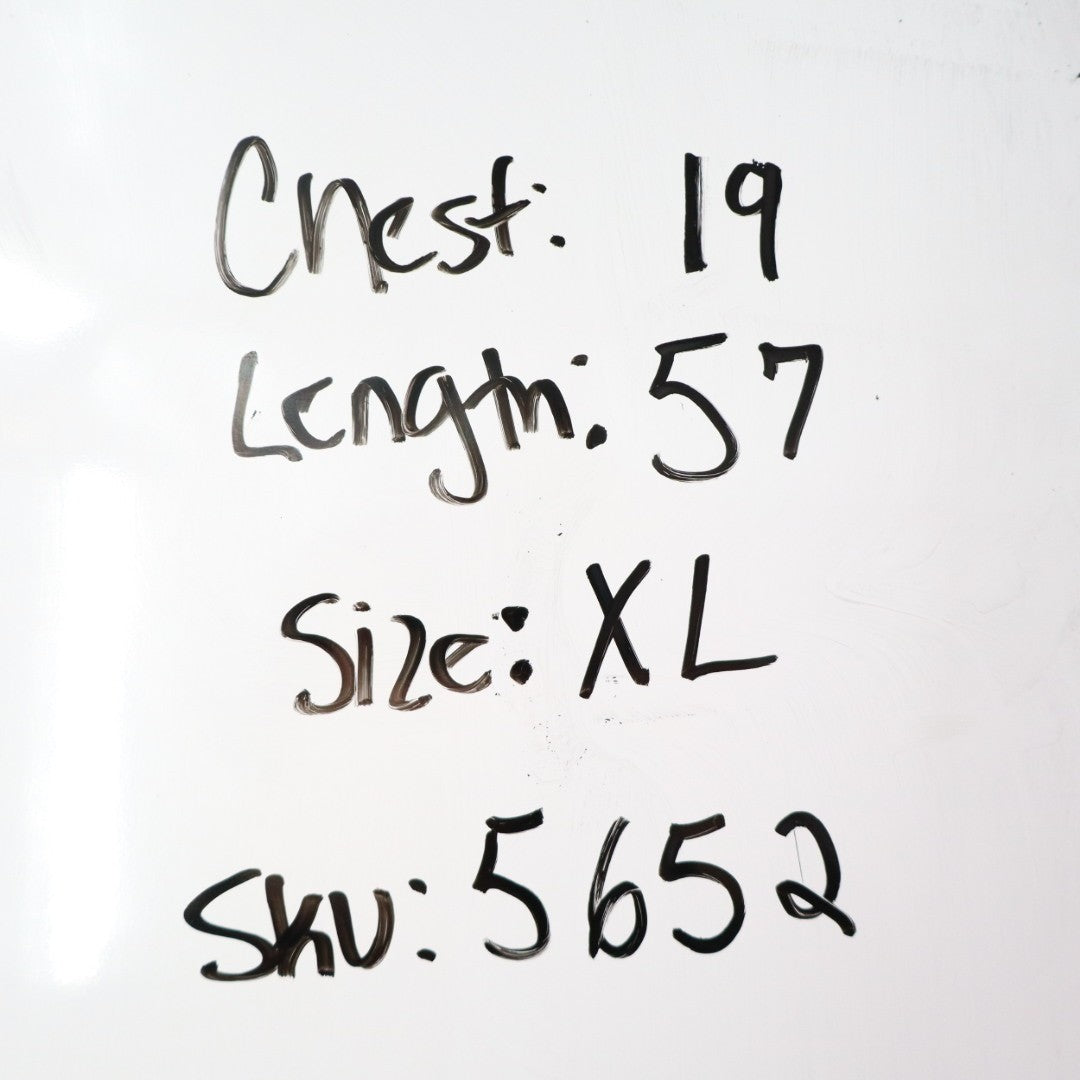 Chest: 19
Length: 57
Size: XL
SKU: 5652